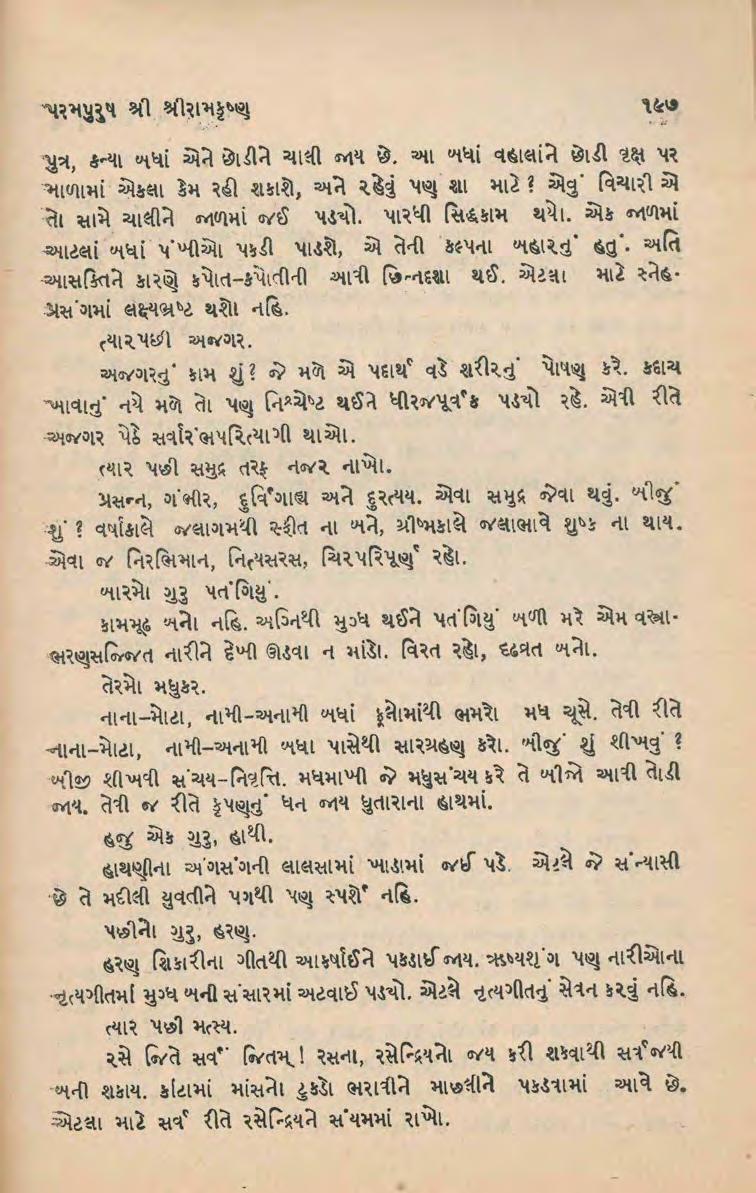 પરમપુરુષ શ્રી શ્રીરામકૃષ્ણ ૧૯૭
પુત્ર, કન્યા બધાં એને છોડીને ચાલી જાય છે. આ બધાં વહાલાંને છોડી વૃક્ષ પર
માળામાં એકલા કેમ રહી શકાશે, અને રહેવું પણ શા માટે? એવું વિચારી એ
તો સામે ચાલીને જાળમાં જઈ પડ્યો. પારધી સિદ્ધકામ થયો. એક જાળમાં
આટલાં બધાં પંખીઓ પકડી પાડશે, એ તેની કલ્પના બહારનું હતું. અતિ
આસક્તિને કારણે કપોત-કપોતીની આવી છિન્નદશા થઈ. એટલા માટે સ્નેહ-
પ્રસંગમાં લક્ષ્યભ્રષ્ટ થશો નહિ.
ત્યારપછી અજગર.
અજગરનું કામ શું? જે મળે એ પદાર્થ વડે શરીરનું પોષણ કરે. કદાચ
ખાવાનું નયે મળે તો પણ નિશ્ચેષ્ટ થઈને ધીરજપૂર્વક પડ્યો રહે. એવી રીતે
અજગર પેઠે સર્વારંભપરિત્યાગી થાઓ.
ત્યાર પછી સમુદ્ર તરફ નજર નાખો.
પ્રસન્ન, ગંભીર, દુર્વિગાહ્ય અને દુરત્યય. એવા સમુદ્ર જેવા થવું. બીજું
શું? વર્ષાકાલે જલાગમથી સ્ફીત ના બને, ગ્રીષ્મકાલે જલાભાવે શુષ્ક ના થાય.
એવા જ નિરભિમાન, નિત્યસરસ, ચિરપરિપૂર્ણ રહો.
બારમો ગુરુ પતંગિયું.
કામમૂઢ બનો નહિ. અગ્નિથી મુગ્ધ થઈને પતંગિયું બળી મરે એમ વસ્ત્રા-
ભરણસજ્જિત નારીને દેખી ઊડવા ન માંડો. વિરત રહો, દૃઢવ્રત બનો.
તેરમો મધુકર.
નાના-મોટા, નામી-અનામી બધાં ફૂલોમાંથી ભમરો મધ ચૂસે. તેવી રીતે
નાના-મોટા, નામી-અનામી બધા પાસેથી સારગ્રહણ કરો. બીજું શું શીખવું?
બીજી શીખવી સંચય-નિવૃત્તિ. મધમાખી જે મધુસંચય કરે તે બીજો આવી તોડી
જાય. તેવી જ રીતે કૃપણનું ધન જાય ધુતારાના હાથમાં.
હજુ એક ગુરુ, હાથી.
હાથણીના અંગસંગની લાલસામાં ખાડામાં જઈ પડે. એટલે જે સંન્યાસી
છે તે મદીલી યુવતીને પગથી પણ સ્પર્શે નહિ.
પછીનો ગુરુ, હરણ.
હરણ શિકારીના ગીતથી આકર્ષાઈને પકડાઈ જાય. ઋષ્યશૃંગ પણ નારીઓના
નૃત્યગીતમાં મુગ્ધ બની સંસારમાં અટવાઈ પડ્યો. એટલે નૃત્યગીતનું સેવન કરવું નહિ.
ત્યાર પછી મત્સ્ય.
રસે જિતે સર્વં જિતમ્! રસના, રસેન્દ્રિયનો જય કરી શકવાથી સર્વજયી
બની શકાય. કાંટામાં માંસનો ટુકડો ભરાવીને માછલીને પકડવામાં આવે છે.
એટલા માટે સર્વ રીતે રસેન્દ્રિયને સંયમમાં રાખો.